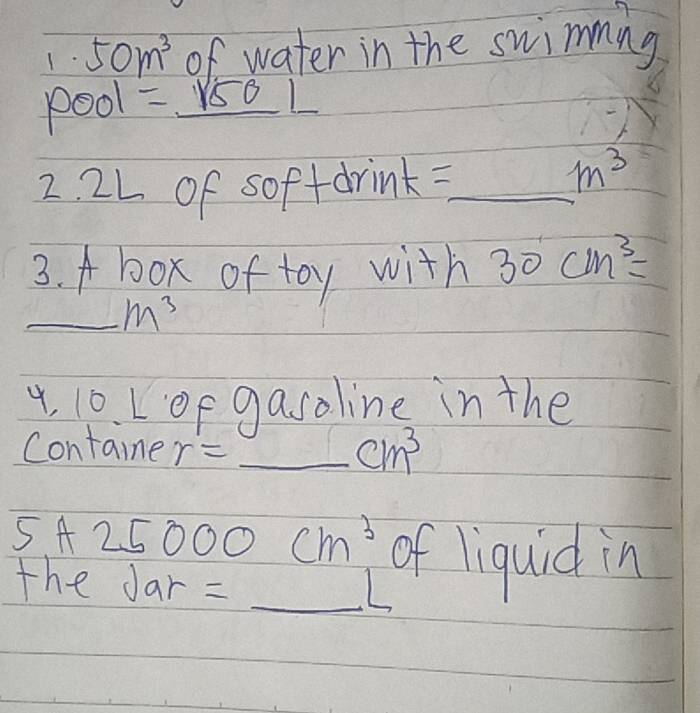 1. 50m³ of water in the swimming
pool = 150 L
2. 2L of softdrink = ____ m³
3. A box of toy with 30 cm³ =
____ m³
4. 10 L of gasoline in the
container = ____ cm³
5 A 25000 cm³ of liquid in
the Jar = ____ L